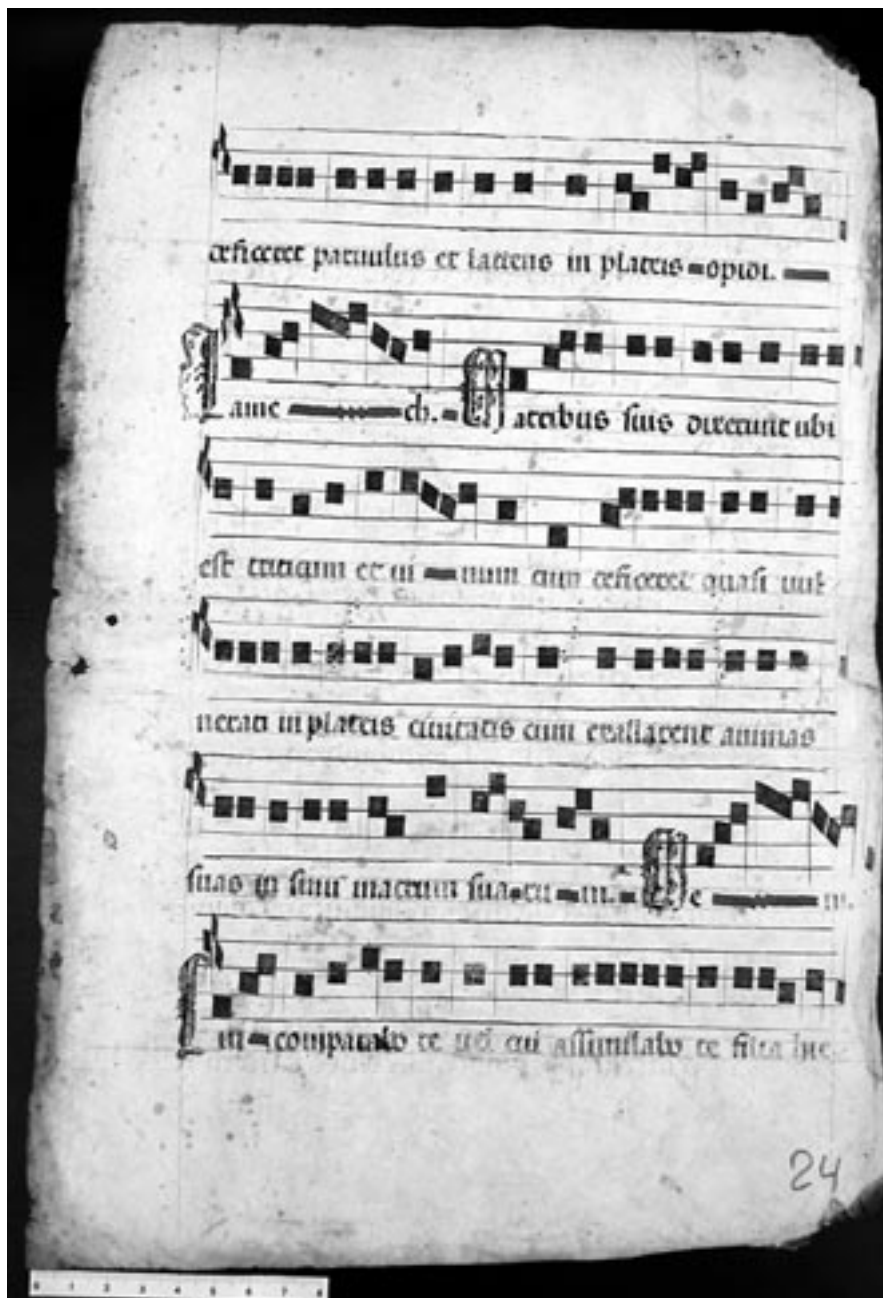 deficeret paruulus et lactens in plateis opidi.
Lame ch. Matribus suis dixerunt ubi
est triticum et ui num cum deficeret quasi uul
nerati in plateis ciuitatis cum exalarent animas
suas in sinu matrum sua ru m. Me m.
Cui comparabo te uel cui assimilabo te filia hie
24
0 1 2 3 4 5 6 7 8